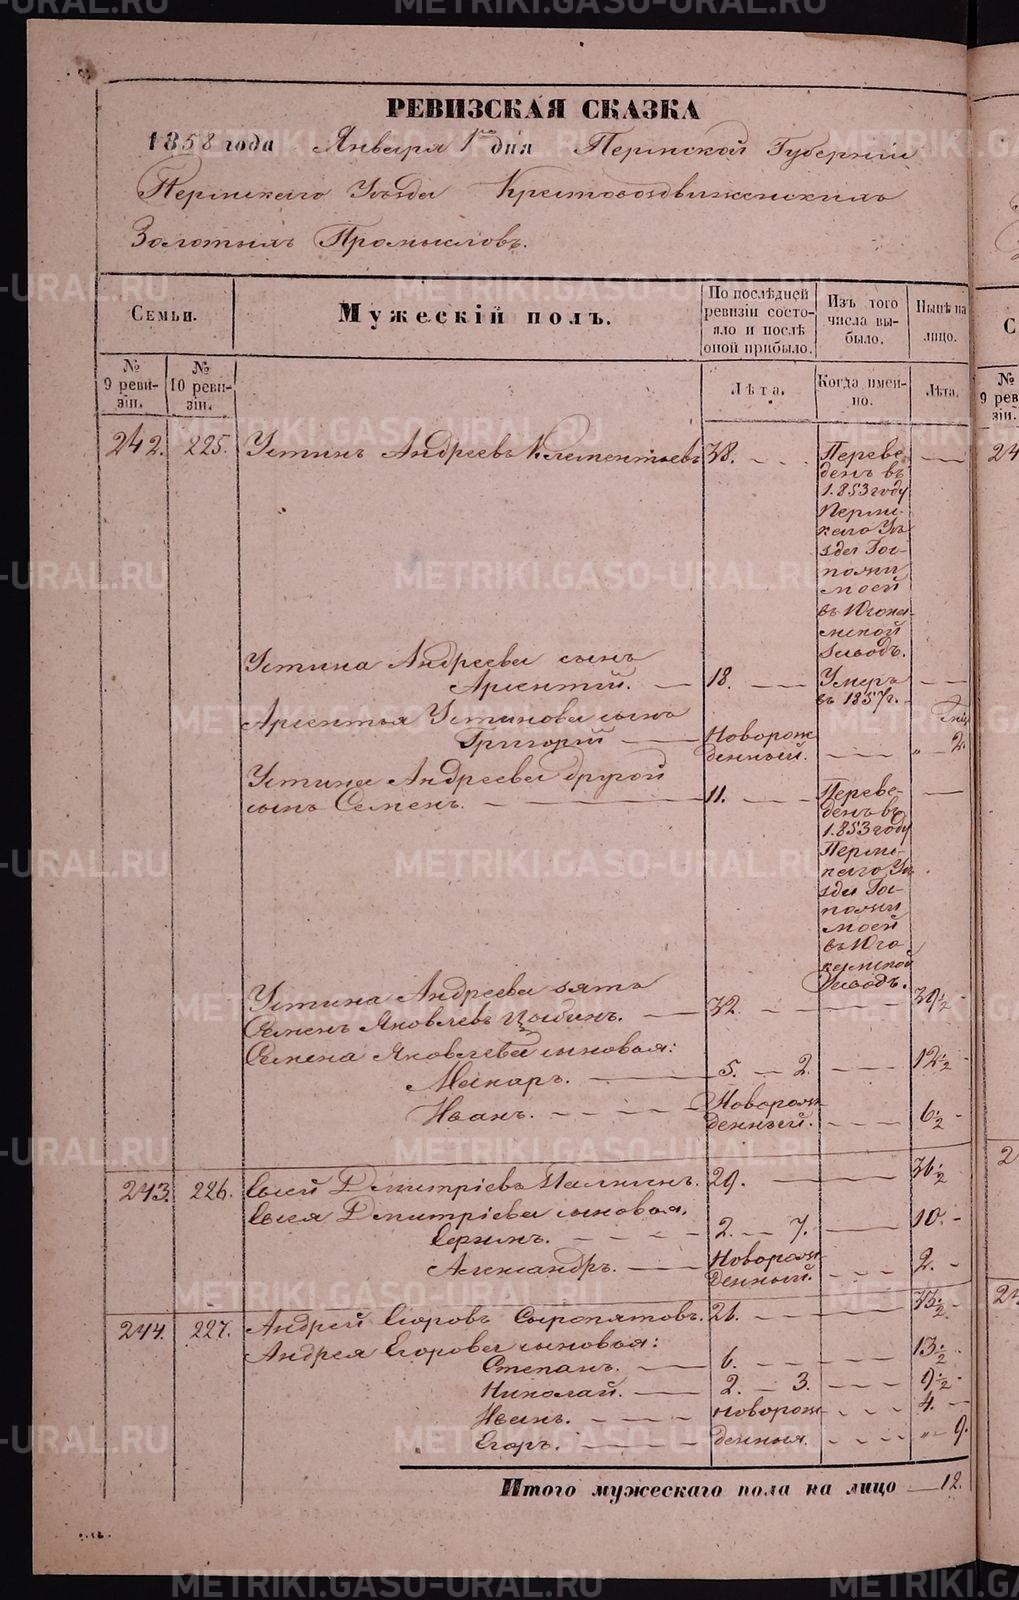 РЕВИЗСКАЯ СКАЗКА
1858 года Января 1го дня Пермской Губернiи
Пермскаго Уѣзда Крестовоздвиженскихъ
Золотыхъ Промысловъ.
Семьи.
Мужескiй полъ.
По послѣдней ревизiи состояло и послѣ оной прибыло.
Изъ того числа выбыло.
Нынѣ на лицо.
№ 9 ревизiи.
№ 10 ревизiи.
Лѣта.
Когда именно.
Лѣта.
242. 225. Устинъ Андреевъ Клементьевъ 38.
Переведенъ въ
1853 году
Пермскаго Уѣзда
Госпожи
моей
въ Югокамской
Заводъ.
Устина Андреева сынъ
Арсентiй. 18. Умеръ въ 1857 г.
Арсентья Устинова сынъ
Григорiй Новорожденный. „ 2.
Устина Андреева другой
сынъ Семенъ. 11.
Переведенъ въ
1853 году
Пермскаго Уѣзда
Госпожи
моей
въ Югокамской
Заводъ.
Устина Андреева зять
Семенъ Яковлевъ 32. 39½
Семена Яковлева сыновья:
Макаръ. 5. 2. 12½
Иванъ. Новорожденный. 6½
243. 226. Дмитрiевъ 29. 36½
Дмитрiева сыновья,
2. 7. 10.
Александръ. Новорожденный. 2.
244. 227. Андрей Егоровъ Сыропятовъ. 26. 33½
Андрея Егорова сыновья:
Степанъ. 6. 13½
Николай. 2. 3. 9½
Иванъ. новорож- 4.
Егоръ. денныя. „ 9.
Итого мужескаго пола на лицо 12.
METRIKI.GASO-URAL.RU